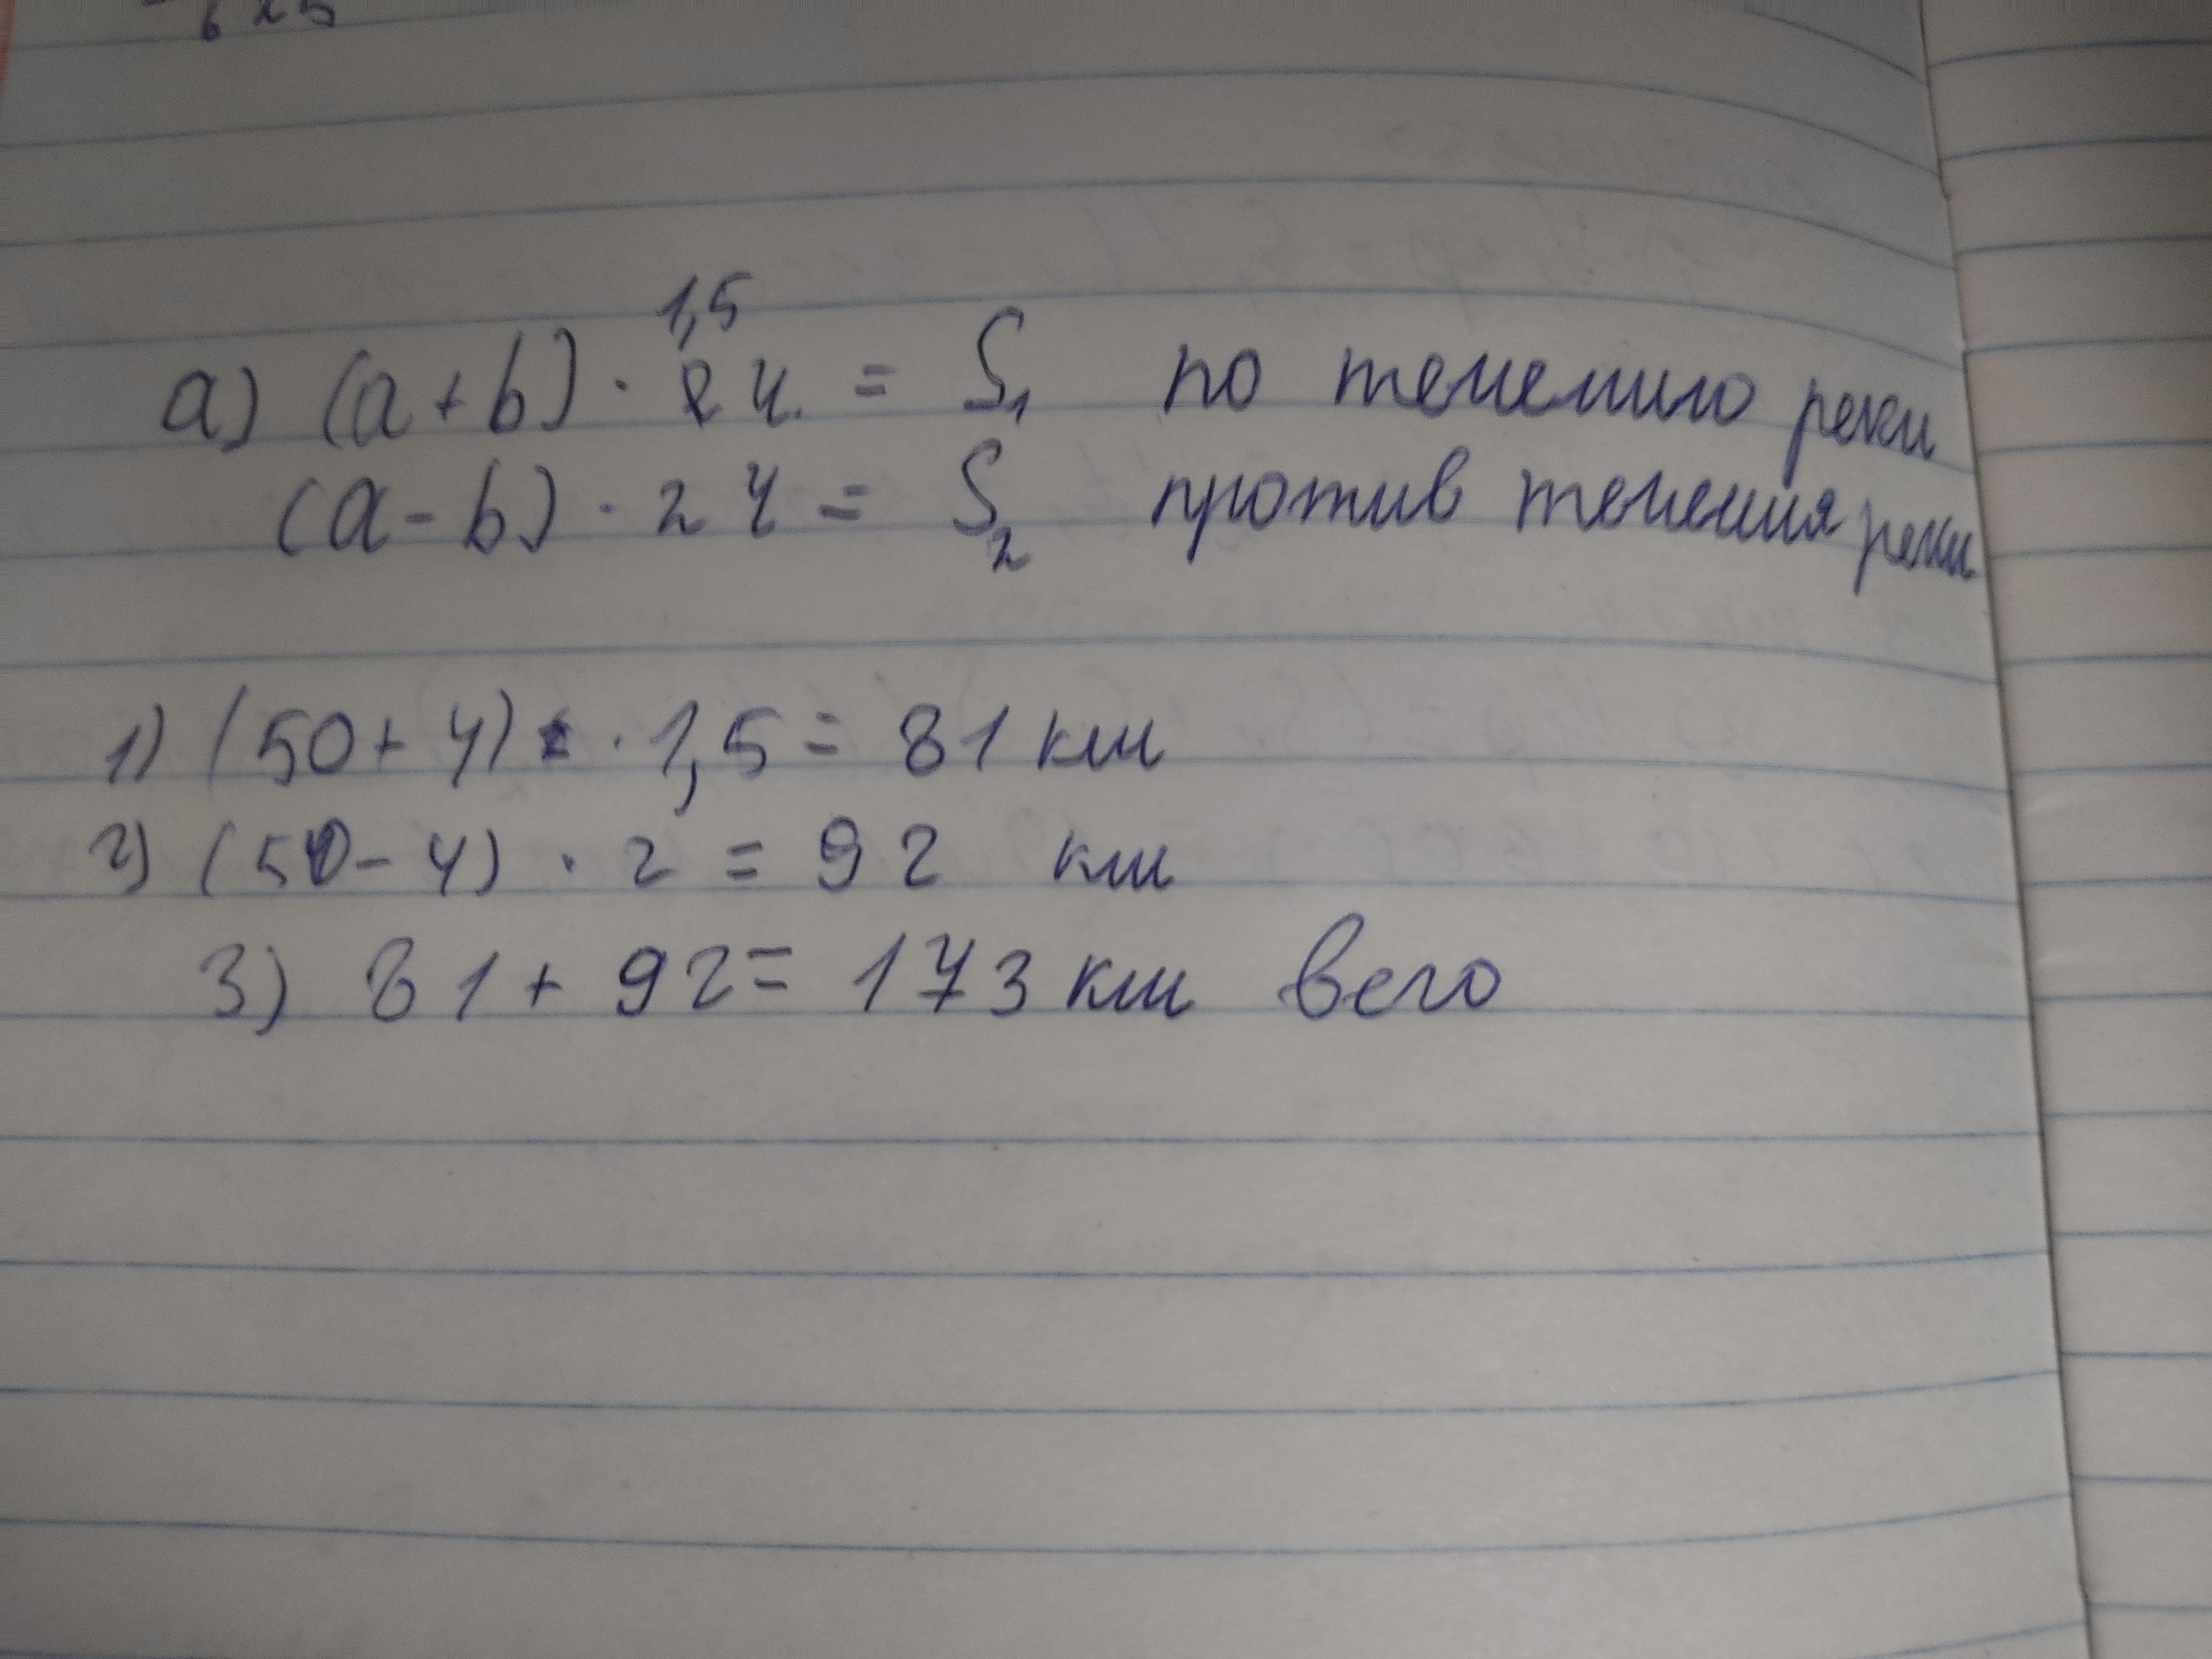 1,5
а) (a + b) · 2 ч. = S₁ по течению реки
(a - b) · 2 ч = S₂ против течения реки
1) (50 + 4) · 1,5 = 81 км
2) (50 - 4) · 2 = 92 км
3) 81 + 92 = 173 км вего